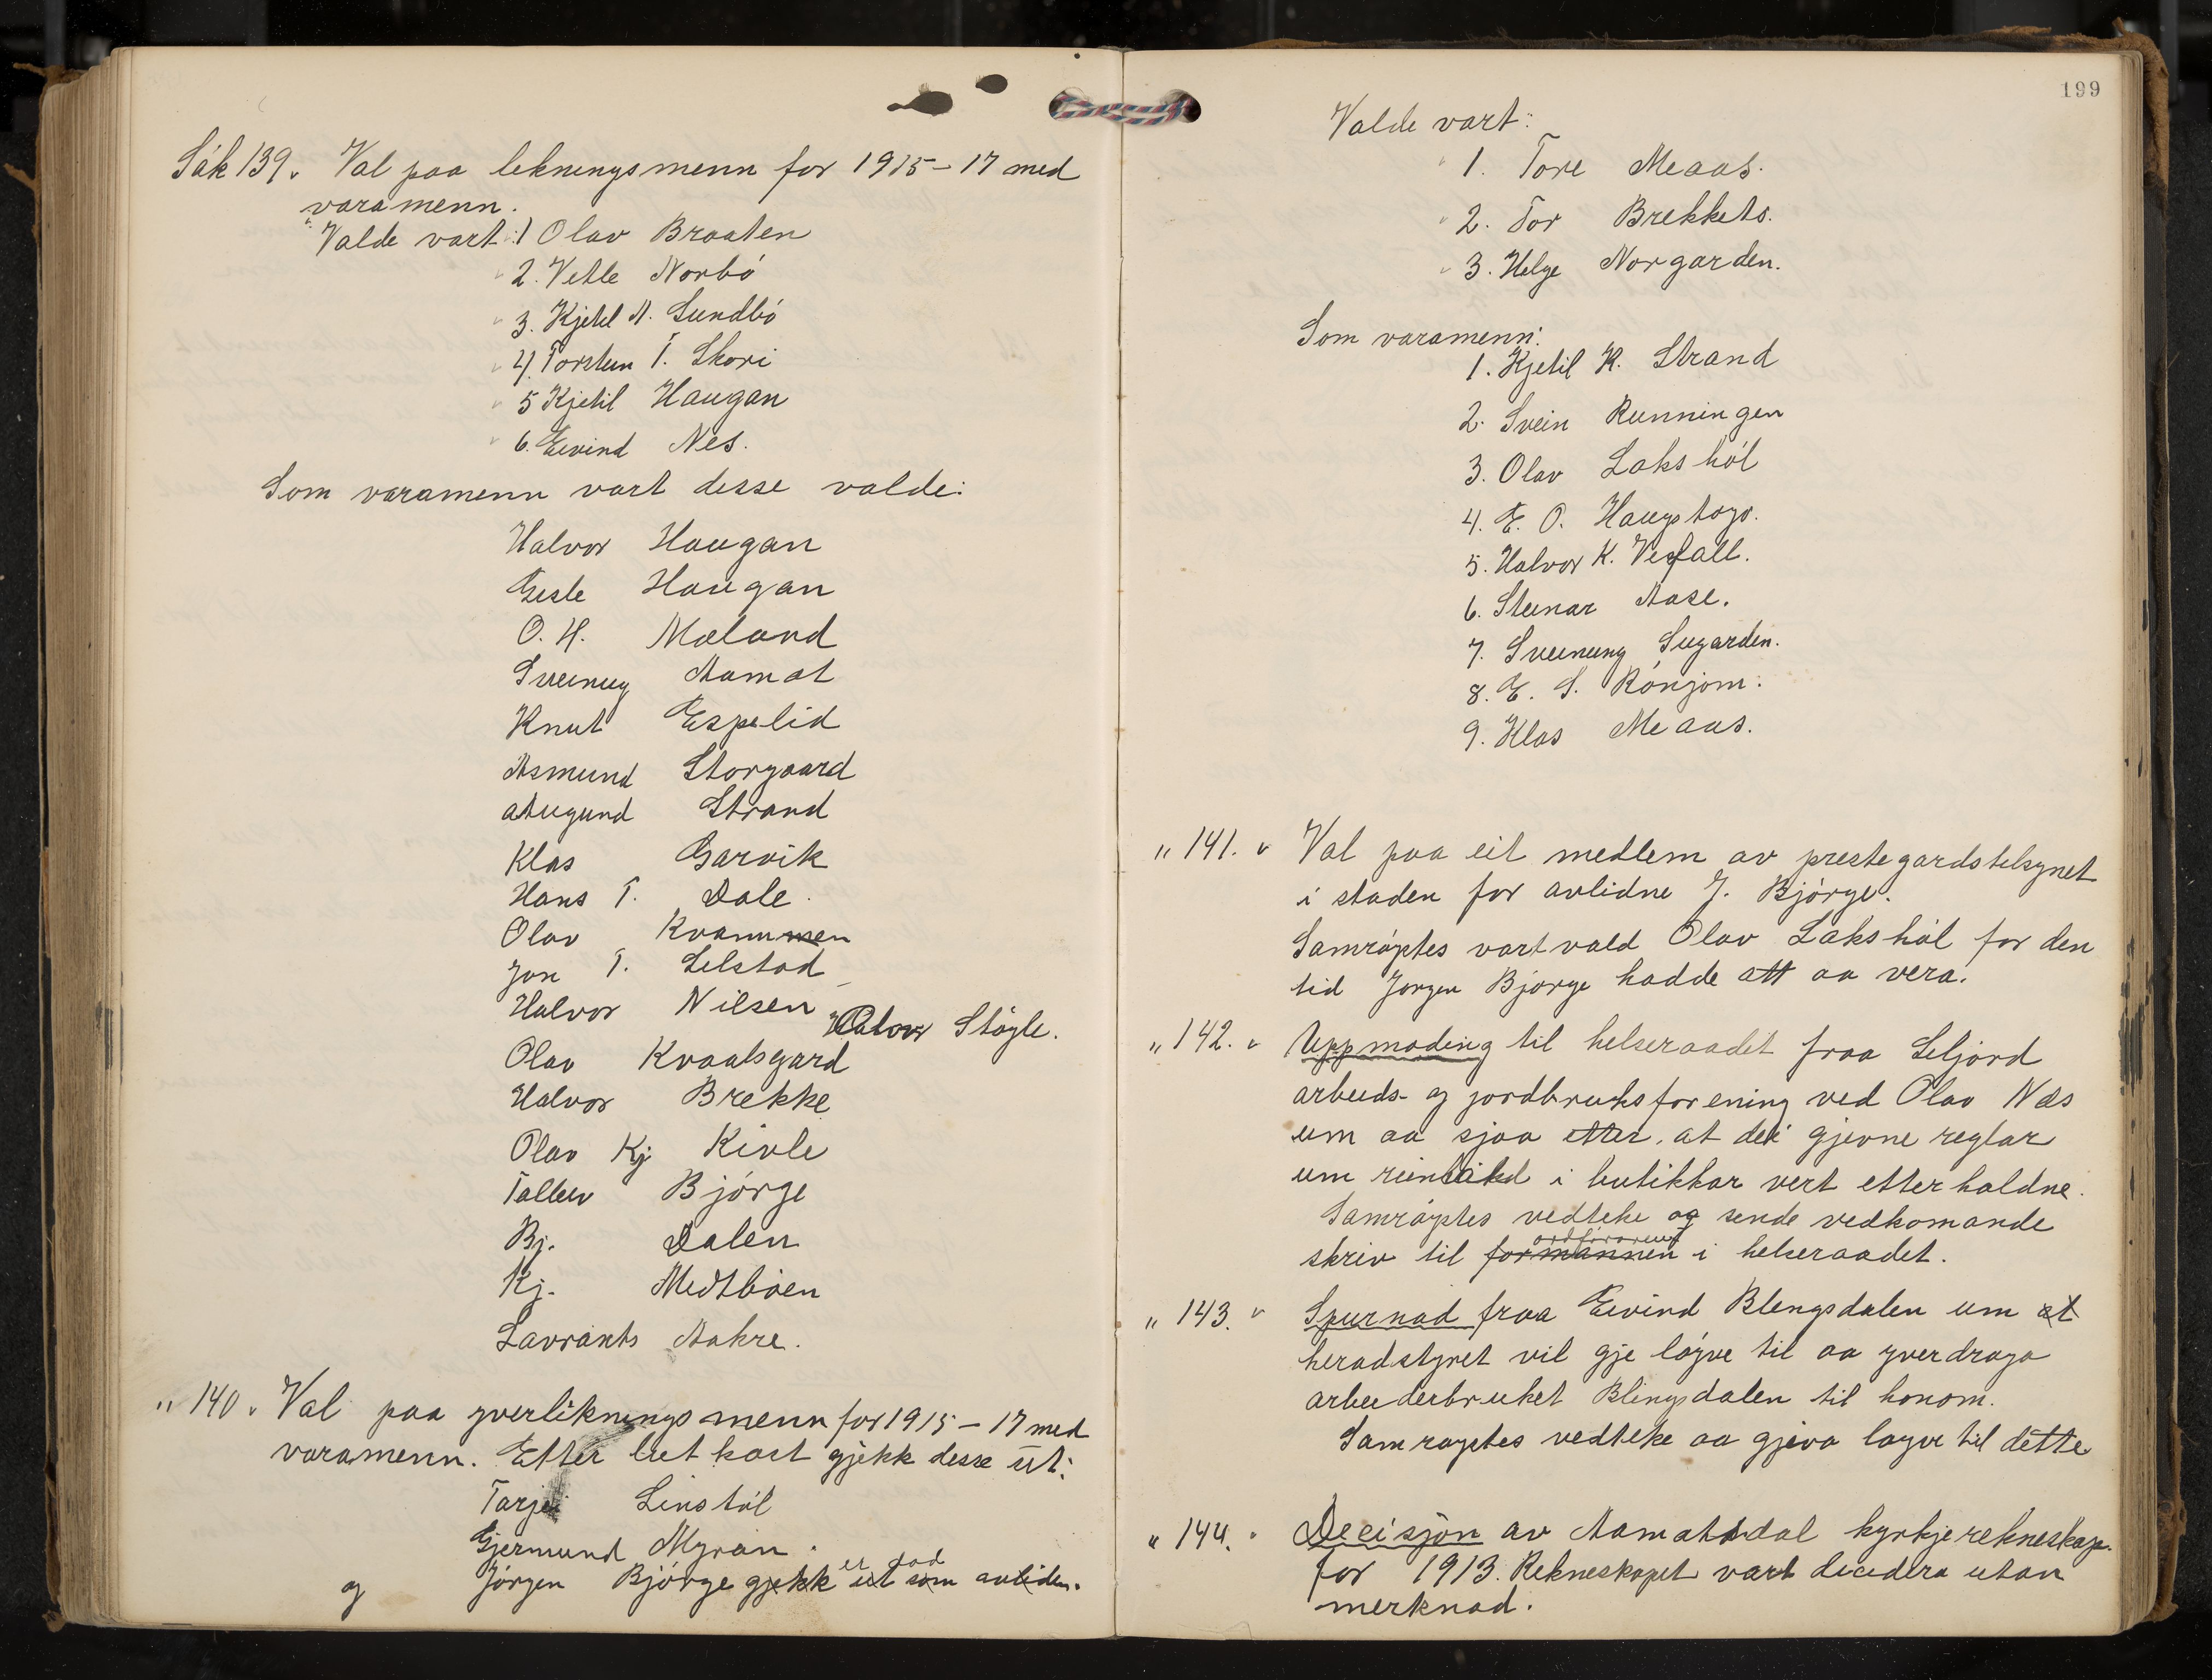 Sak 139. Val paa likningsmenn for 1915-17 med
varamenn.
Valde vart: 1 Olav Braaten
2. Vetle Norbó
3. Kjetil A. Sundbó
4. Torstein T. Skori
5 Kjetil Haugan
6. Eivind Nes.
Som varamenn vart desse valde:
Halvor Haugan
Gisle Haugan
O. H. Mæland
Sveinug Aamot
Knut Espelid
Asmund Storgaard
Augund Strand
Klas Garvik
Hans T. Dale.
Olav Kvammen
Jon T. Selstad
Halvor Nilsen
Halvor Stógle.
Olav Kvaalsgard
Halvor Brekke
Olav Kj Kivle
Tallev Bjórge
Bj. Dalen
Kj. Medtbóen
Lavrants Aakre.
" 140. Val paa yverlikningsmenn for 1915-17 med
varamenn. Etter lutkast gjekk desse ut:
Tarjei Linstól
Gjermund Myran.
er dad
og Jórgen Bjórge gjekk ut som avliden.
199
Valde vart:
1. Tore Meaas.
2. Tor Brekketo.
3. Helge Norgarden.
Som varamenn:
1. Kjetil K. Strand
2. Svein Runningen
3. Olav Lakshól
4. E. O. Haugstogo.
5. Halvor K. Vefall.
6. Steinar Aase.
7. Sveinung Sugarden.
8. E. S. Rónjom.
9. Klas Meaas.
" 141. Val paa eit medlem av prestegardstilsynet
i staden for avlidne J. Bjórge.
Samróystes vart vald Olav Lakshól for den
tid Jorgen Bjorge hadde att aa vera.
" 142. Uppmoding til helseraadet fraa Seljord
arbeids- og jordbruksforening ved Olav Næs
um aa sjaa etter, at dei gjevne reglar
um reinhald i butikkar vert etterhaldne.
Samróystes vedteke og sende vedkomande
ordfóraren
skriv til formannen i helseraadet.
" 143. Spurnad fraa Eivind Blengsdalen um at
heradstyret vil gje lóyve til aa yverdraga
arbeiderbruket Blingsdalen til honom.
Samroystes vedteke aa gjeva loyve til dette
" 144. Decisjon av Aamotsdal kyrkjerekneskap.
for 1913. Rekneskapet vart decidera utan
merknad.